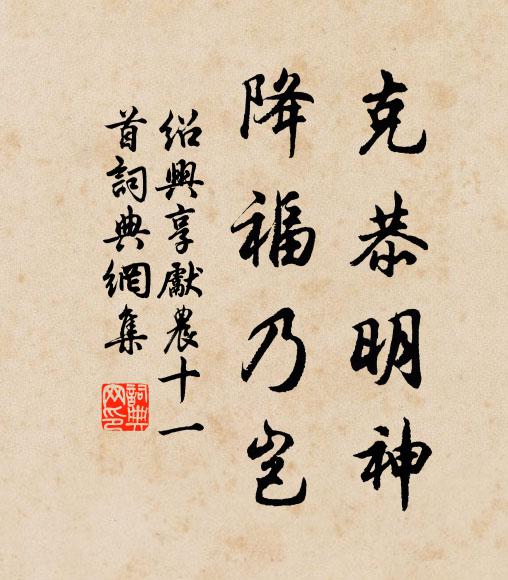 克恭明神
降福乃岂
绍兴享獻農十一
首詞典網集
詞典網印